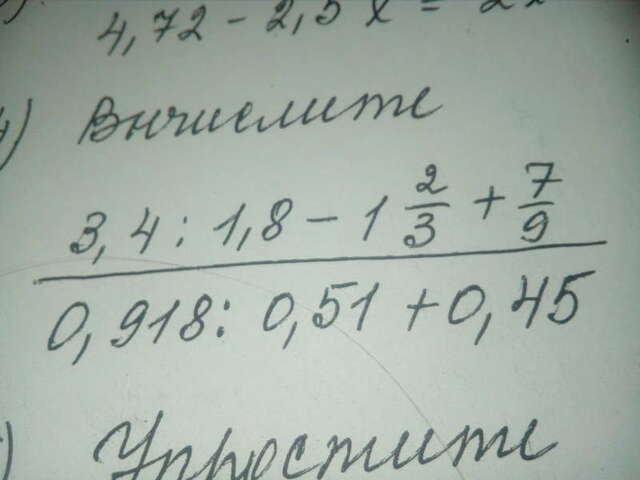 4,72 - 2,5 x =
4) Вычислите
3,4 : 1,8 - 1 2/3 + 7/9
0,918 : 0,51 + 0,45
Упростите